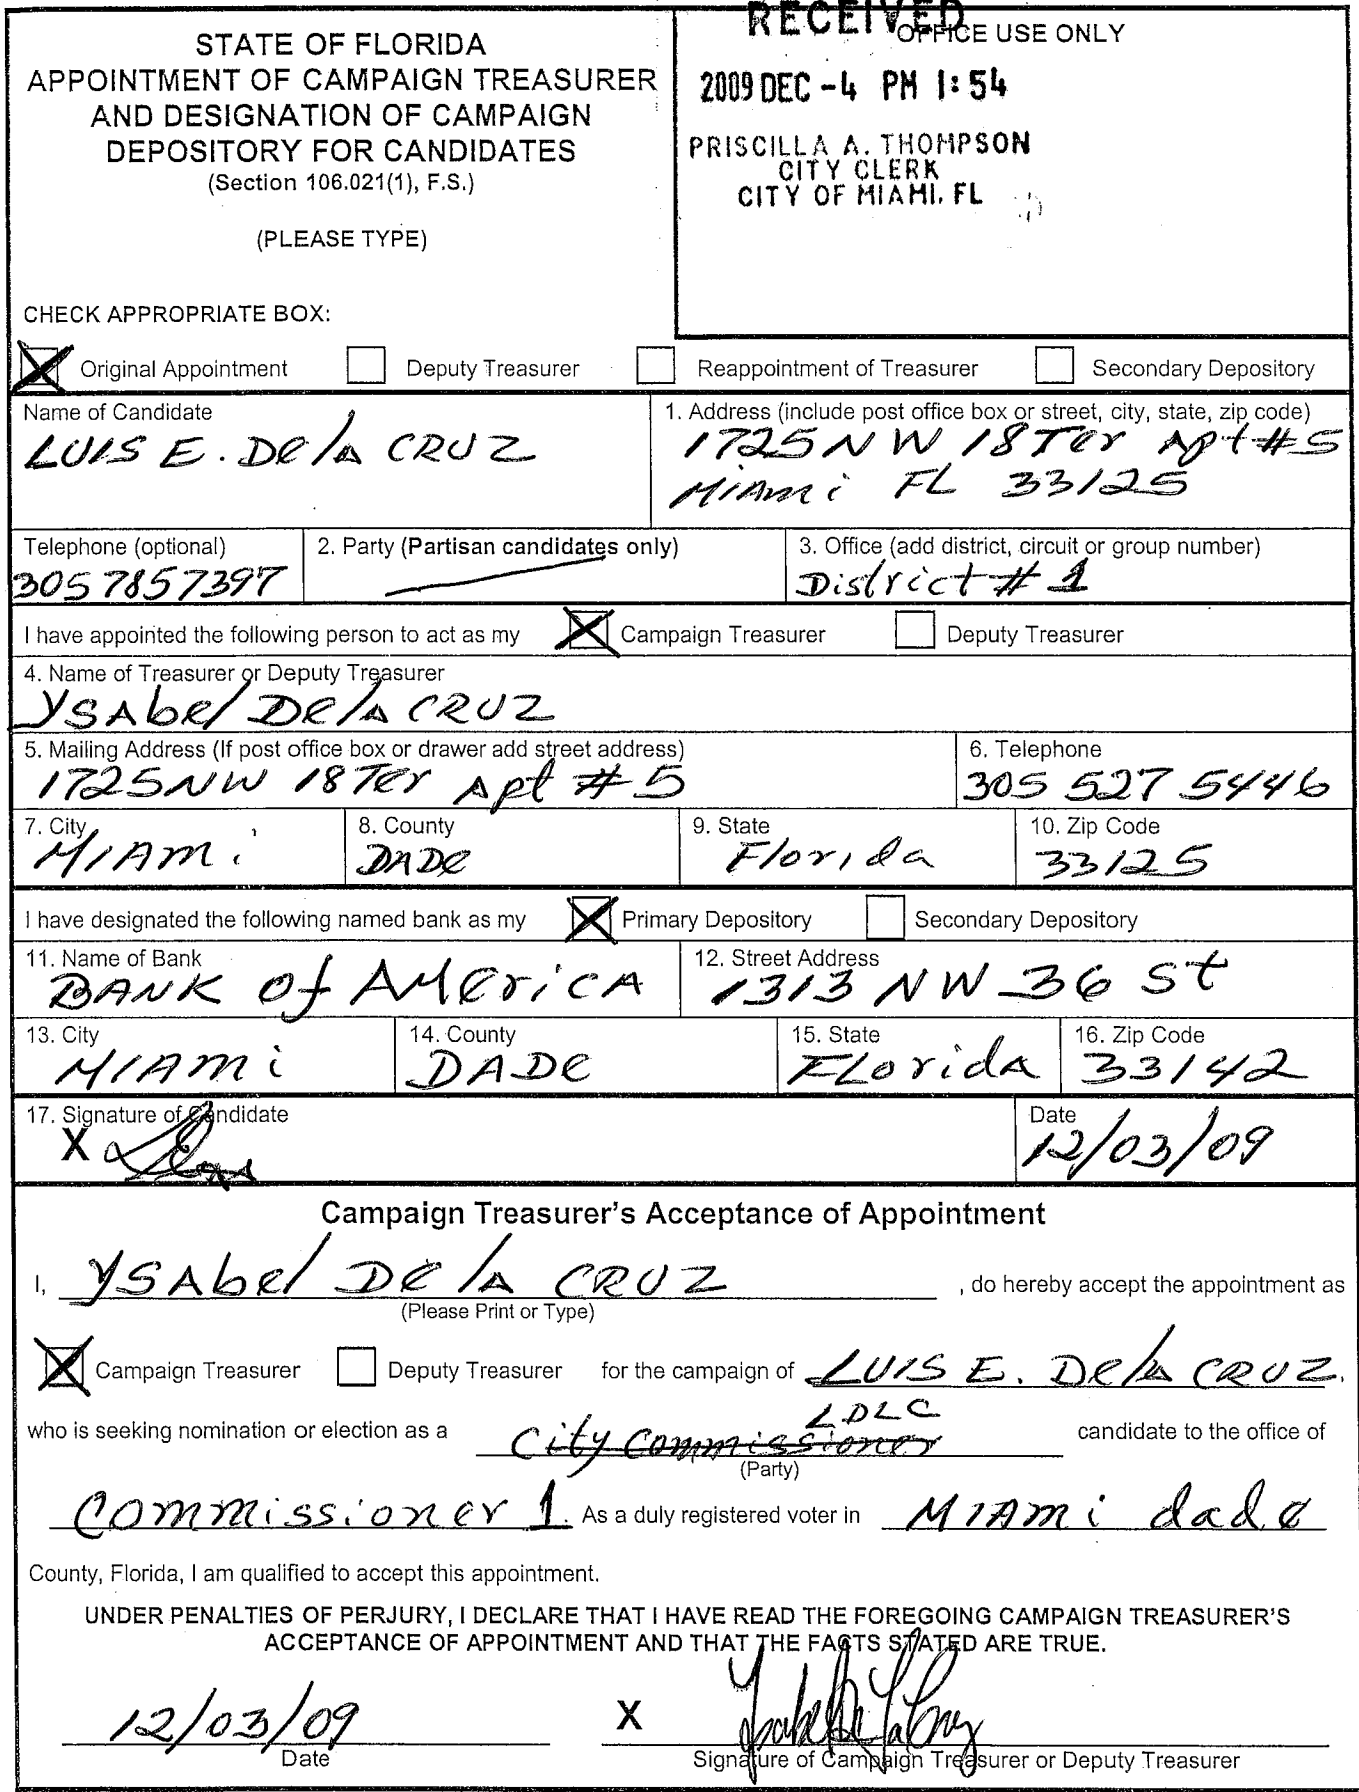 STATE OF FLORIDA
APPOINTMENT OF CAMPAIGN TREASURER
AND DESIGNATION OF CAMPAIGN
DEPOSITORY FOR CANDIDATES
(Section 106.021(1), F.S.)
(PLEASE TYPE)
CHECK APPROPRIATE BOX:
RECEIVED
OFFICE USE ONLY
2009 DEC -4 PM 1:54
PRISCILLA A. THOMPSON
CITY CLERK
CITY OF MIAMI, FL
Original Appointment Deputy Treasurer Reappointment of Treasurer Secondary Depository
Name of Candidate
LUIS E. De la CRUZ
1. Address (include post office box or street, city, state, zip code)
1725 NW 18 Ter Apt #5
Miami FL 33125
Telephone (optional)
305 785 7397
2. Party (Partisan candidates only)
3. Office (add district, circuit or group number)
District # 1
I have appointed the following person to act as my Campaign Treasurer Deputy Treasurer
4. Name of Treasurer or Deputy Treasurer
YSAbel De la CRUZ
5. Mailing Address (If post office box or drawer add street address)
1725 NW 18 Ter Apt # 5
6. Telephone
305 527 5446
7. City
MIAMi
8. County
DADe
9. State
Florida
10. Zip Code
33125
I have designated the following named bank as my Primary Depository Secondary Depository
11. Name of Bank
BANK of AMericA
12. Street Address
1313 NW 36 St
13. City
MIAMi
14. County
DADe
15. State
FLorida
16. Zip Code
33142
17. Signature of Candidate
X
Date
12/03/09
Campaign Treasurer's Acceptance of Appointment
I, YSAbel De lA CRUZ , do hereby accept the appointment as
(Please Print or Type)
Campaign Treasurer Deputy Treasurer for the campaign of LUIS E. De la CRUZ.
LDLC
who is seeking nomination or election as a City Commissioner candidate to the office of
(Party)
Commissioner 1. As a duly registered voter in MIAMi dade
County, Florida, I am qualified to accept this appointment.
UNDER PENALTIES OF PERJURY, I DECLARE THAT I HAVE READ THE FOREGOING CAMPAIGN TREASURER'S
ACCEPTANCE OF APPOINTMENT AND THAT THE FACTS STATED ARE TRUE.
12/03/09 X Ysabel De La Cruz
Date Signature of Campaign Treasurer or Deputy Treasurer